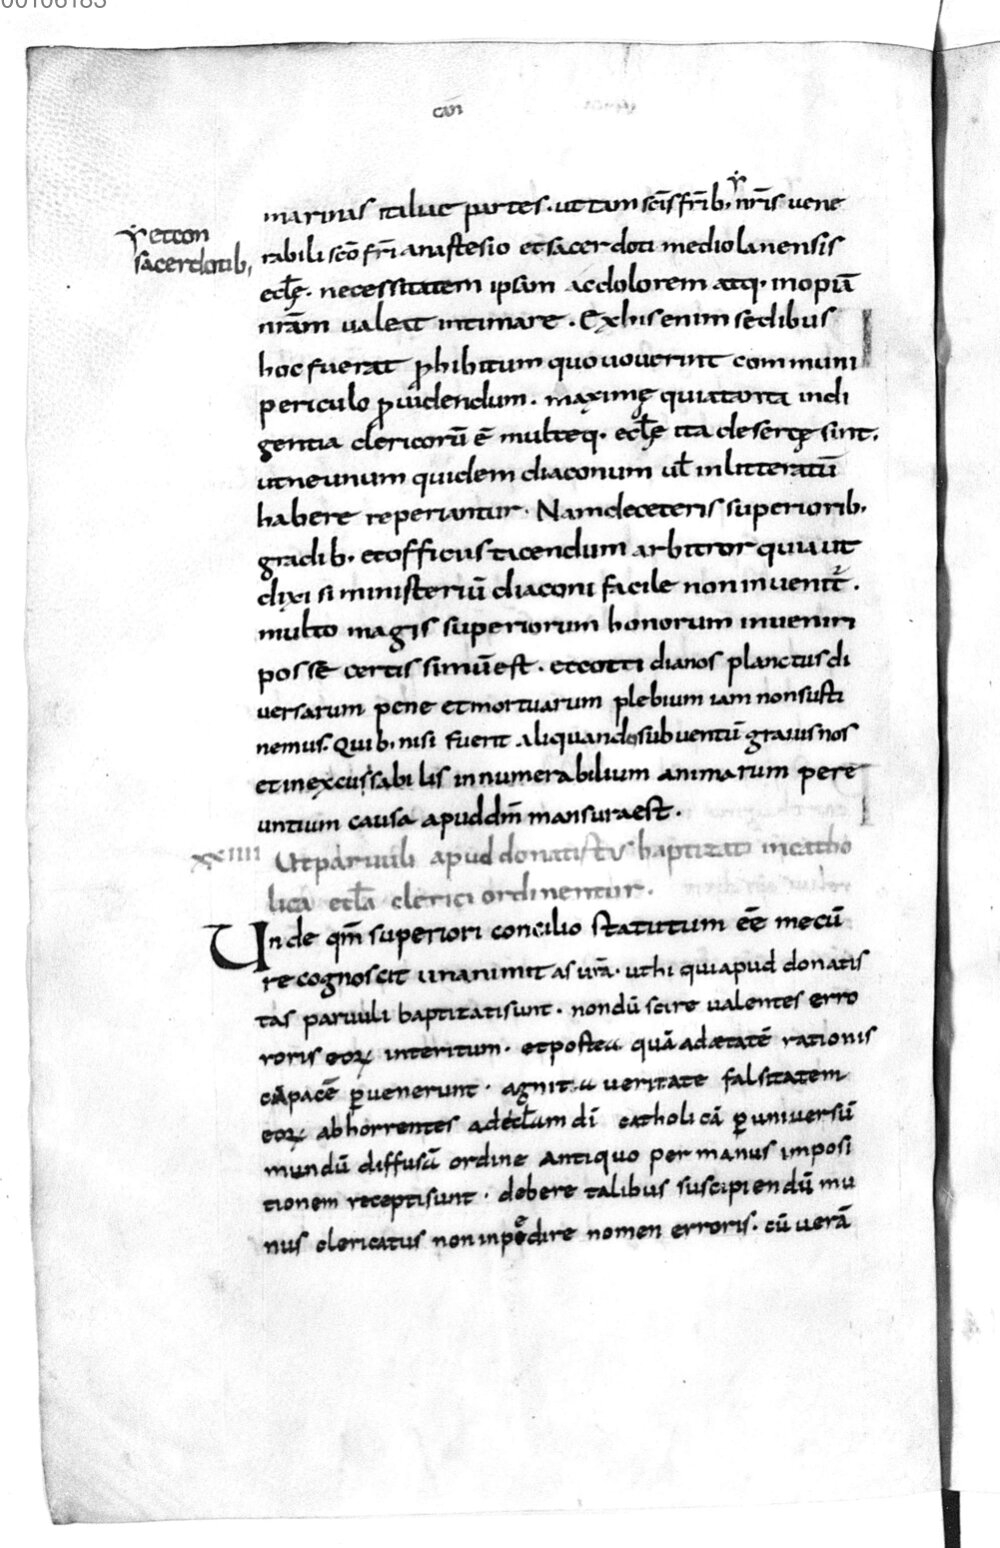 00106183
can
marinas italiae partes. ut tam scīs frīb, nr̄is vene
Et con
sacerdotib,
rabili scō fr̄i anastesio et sacerdoti mediolanensis
ecl̄ę. necessitatem ipsam ac dolorem atq; inopiā
nr̄am valeat intimare. Ex his enim sedibus
hoc fuerat ꝓhibitum quo noverint communi
periculo ꝓvidendum. maximę quia tota indi
gentia clericorū ē multeq; ecl̄ę ita desertę sint.
ut ne unum quidem diaconum ul̄ inlitteratū
habere reperiantur. Nam de ceteris superiorib,
gradib, et officiis tacendum arbitror quia ut
dixi si ministeriū diaconi facile non invenit̄.
multo magis superiorum honorum inveniri
posse certissimū est. et cotti dianos planctus di
versarum pene et mortuarum plebium iam non susti
nemus. Quib, nisi fuerit aliquando subventū gravis nos
et inexcussabilis innumerabilium animarum pere
untium causa apud dm̄ mansura est.
xxiiii Ut parvuli apud donatistas baptizati in catho
lica ecl̄a clerici ordinentur.
Unde qm̄ superiori concilio statutum eē mecū
recognoscit unanimitas ur̄a. uthi qui apud donatis
tas parvuli baptizati sunt. nondū scire valentes erro
roris eoꝝ interitum. et postea quā ad ætatē rationis
capacē ꝑvenerunt. agnita veritate falsitatem
eoꝝ abhorrentes ad ecl̄am dī catholicā ꝑ universū
mundū diffusā ordine antiquo per manus imposi
tionem recepti sunt. debere talibus suscipiendū mu
nus clericatus non inpedire nomen erroris. cū verā